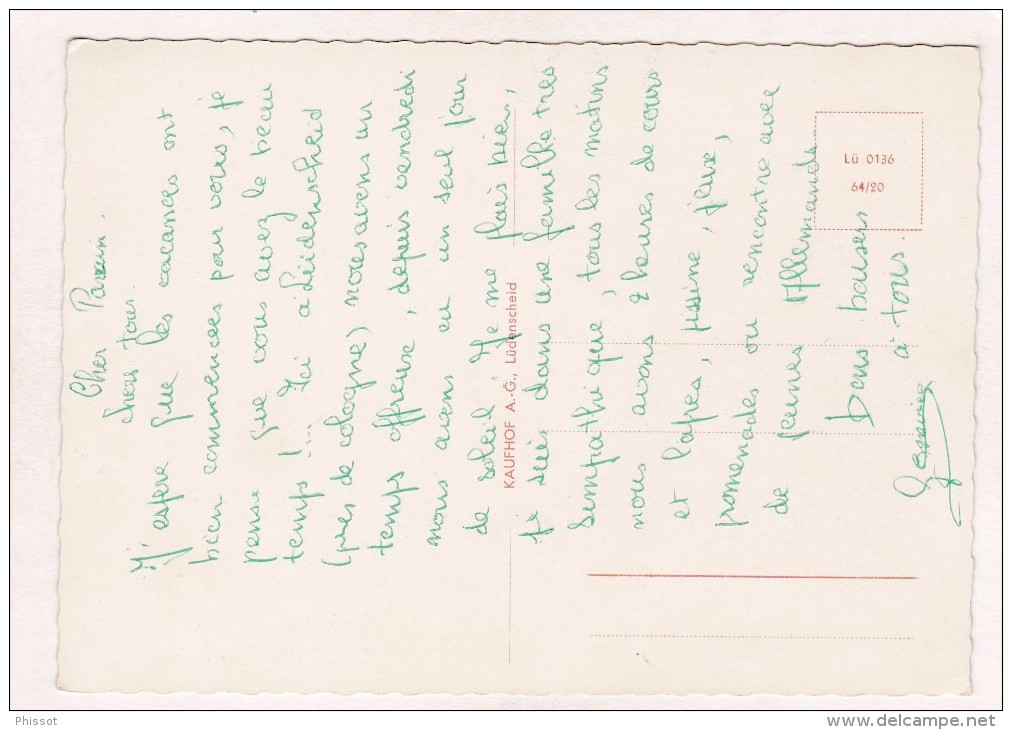 Cher Parrain
chers tous.
J'espère que les vacances ont
bien commencées pour vous, je
pense que vous avez le beau
temps !... Ici à Lüdenscheid
(près de cologne) nous avons un
temps affreux, depuis vendredi
nous avons eu un seul jour
de soleil. Je me plais bien,
je suis dans une famille très
sympathique, tous les matins
nous avons 2 heures de cours
et l'après, piscine, jeux,
promenades ou rencontre avec
de jeunes Allemands
Bons baisers
à tous.
KAUFHOF A.-G., Lüdenscheid
LÜ 0136
64/20
Phissot
www.delcampe.net